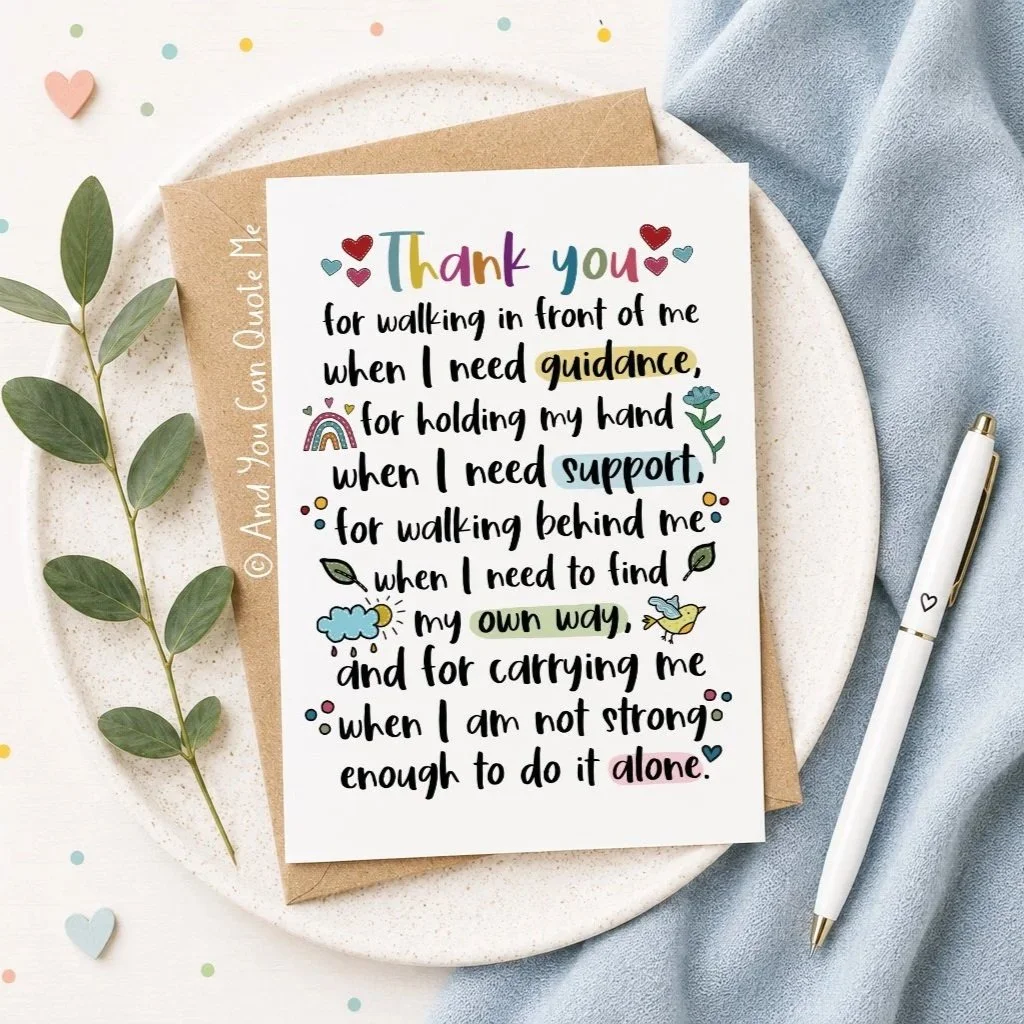 Thank you
for walking in front of me
when I need guidance,
for holding my hand
when I need support,
for walking behind me
when I need to find
my own way,
and for carrying me
when I am not strong
enough to do it alone.
© And You Can Quote Me